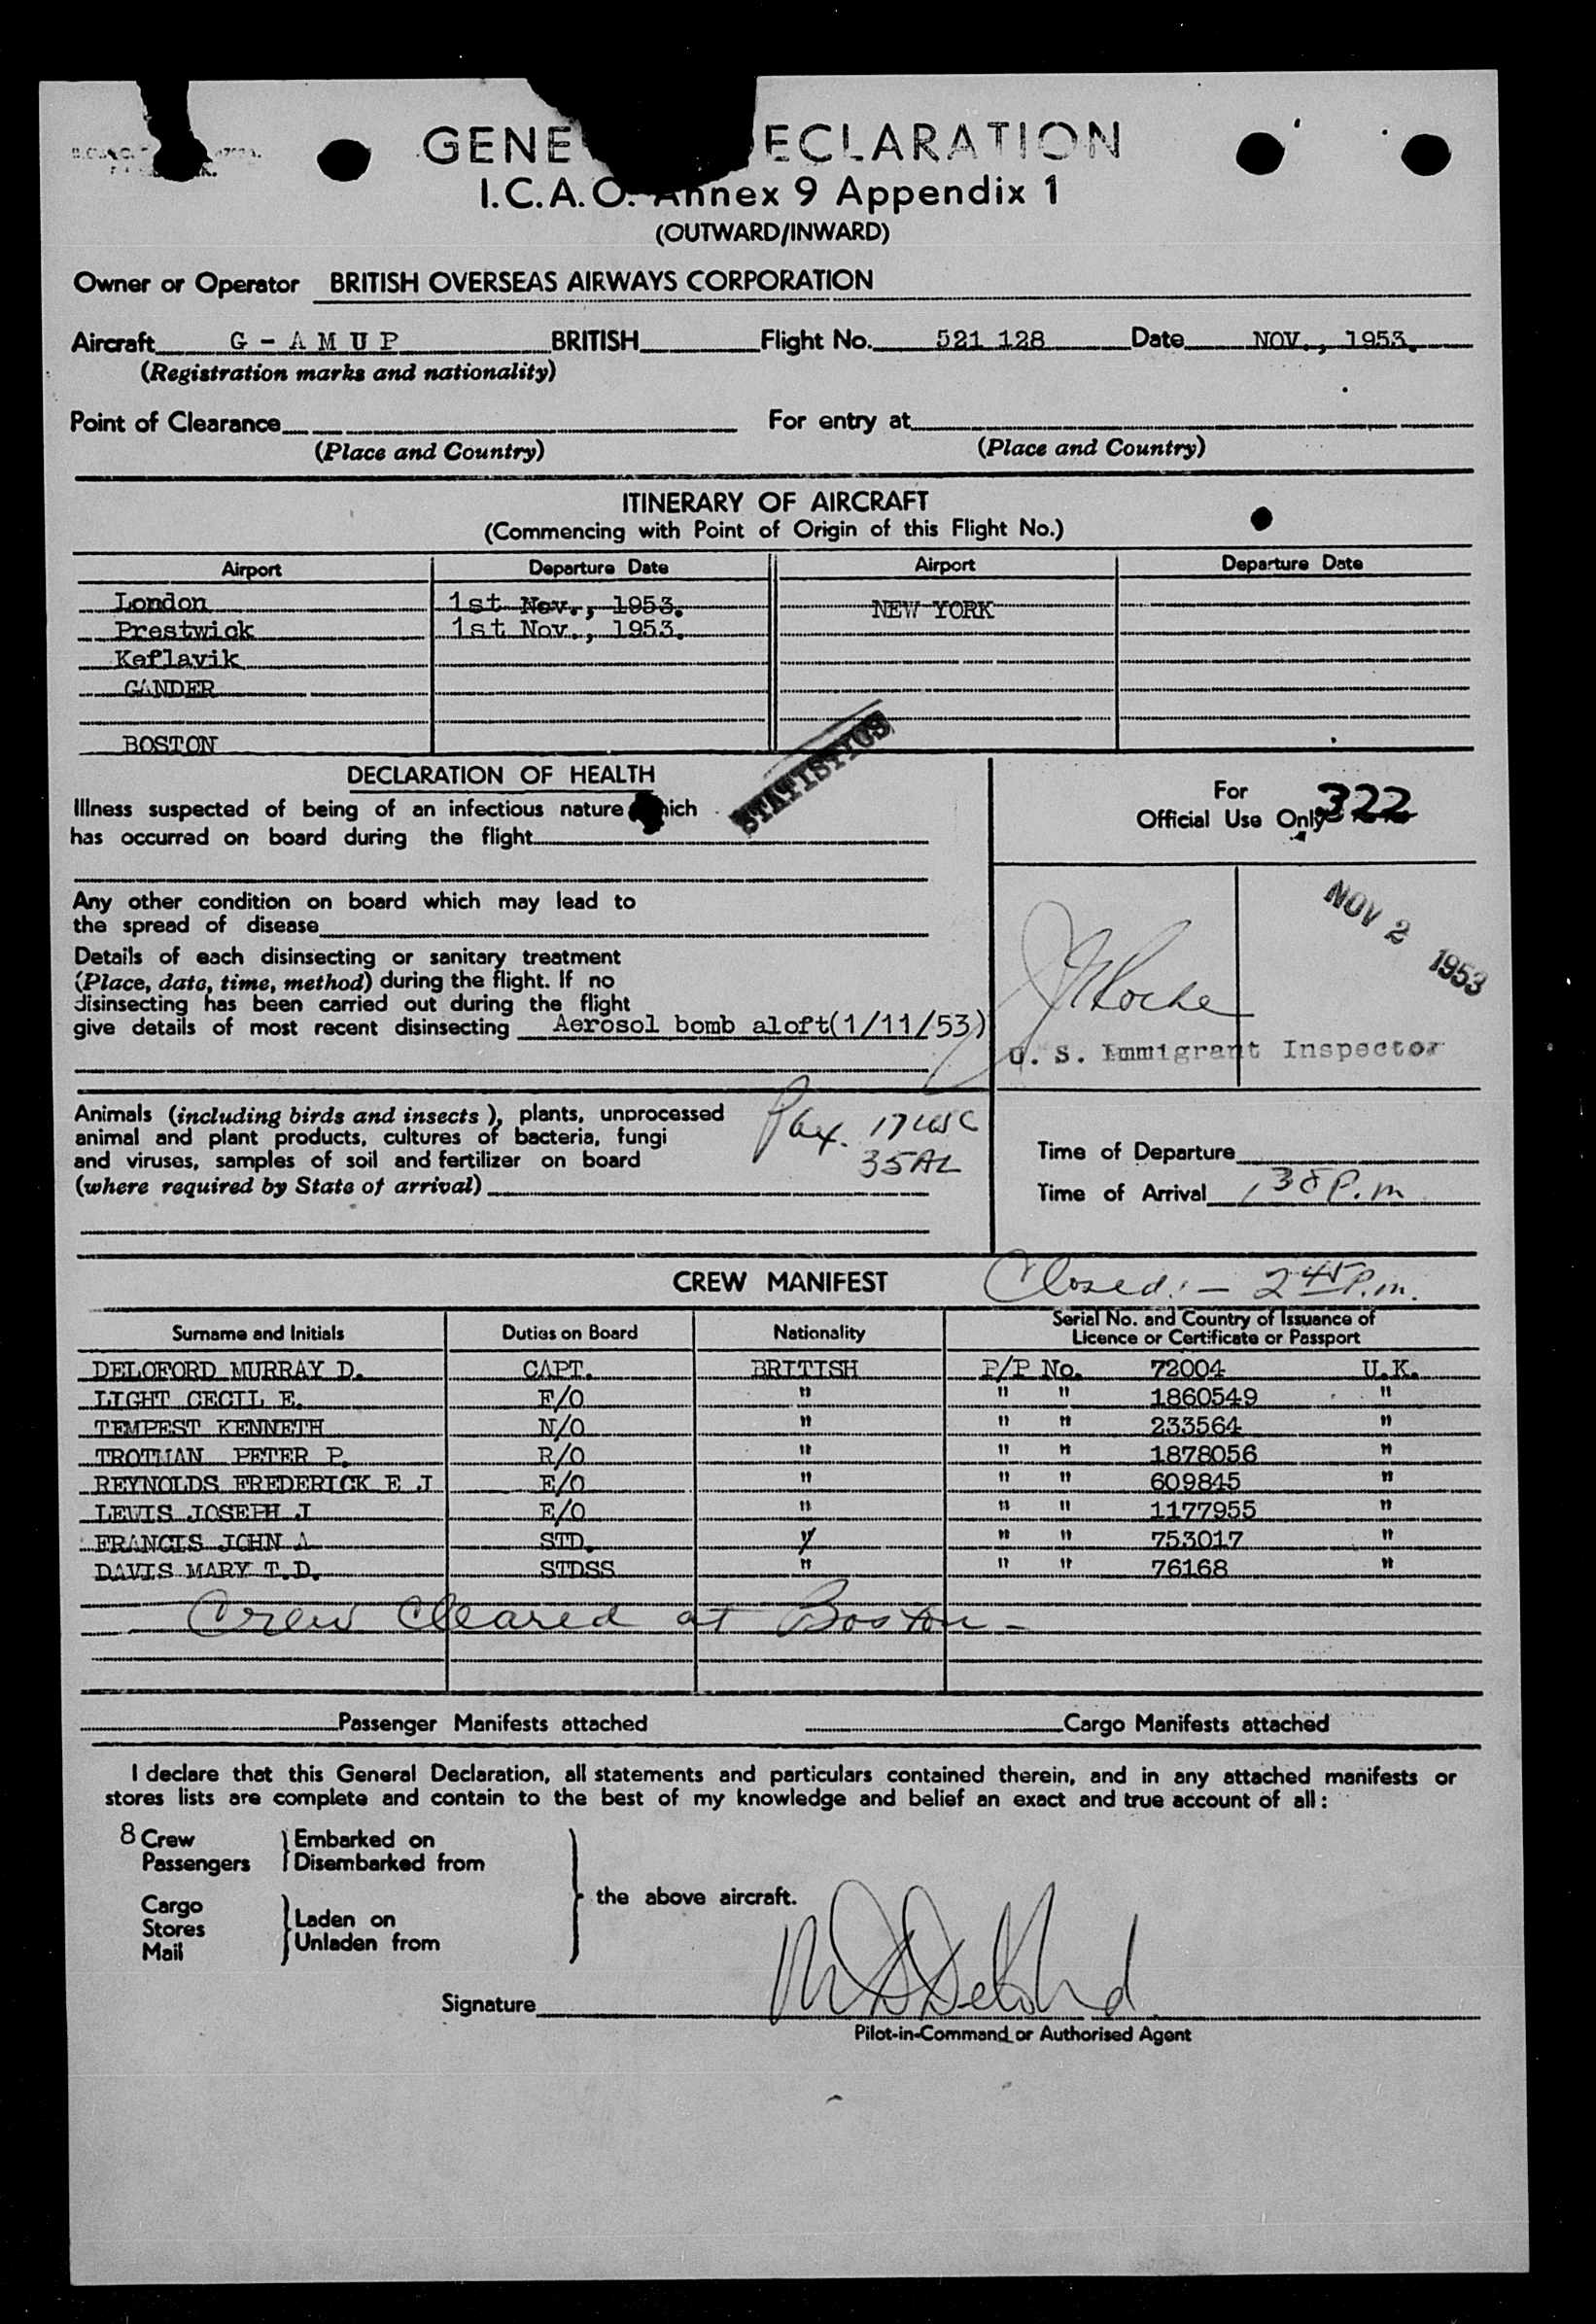 GENE ECLARATION
I.C.A.O. Annex 9 Appendix 1
(OUTWARD/INWARD)
Owner or Operator BRITISH OVERSEAS AIRWAYS CORPORATION
Aircraft G - A M U P BRITISH Flight No. 521 128 Date NOV., 1953.
(Registration marks and nationality)
Point of Clearance For entry at
(Place and Country) (Place and Country)
ITINERARY OF AIRCRAFT
(Commencing with Point of Origin of this Flight No.)
Airport Departure Date Airport Departure Date
London 1st Nov., 1953. NEW YORK
Prestwick 1st Nov., 1953.
Keflavik
GANDER
BOSTON
STATISTICS
DECLARATION OF HEALTH
Illness suspected of being of an infectious nature hich
has occurred on board during the flight
Any other condition on board which may lead to
the spread of disease
Details of each disinsecting or sanitary treatment
(Place, date, time, method) during the flight. If no
disinsecting has been carried out during the flight
give details of most recent disinsecting Aerosol bomb aloft(1/11/53)
For
Official Use Only 322
NOV 2 1953
Roche
U. S. Immigrant Inspector
Animals (including birds and insects), plants, unprocessed
animal and plant products, cultures of bacteria, fungi
and viruses, samples of soil and fertilizer on board
(where required by State of arrival)
Pax. 17 USC
35 AL
Time of Departure
Time of Arrival 1 30 P.m
CREW MANIFEST Closed:- 2 45 P.m.
Surname and Initials Duties on Board Nationality Serial No. and Country of Issuance of
Licence or Certificate or Passport
DELOFORD MURRAY D. CAPT. BRITISH P/P No. 72004 U.K.
LIGHT CECIL E. F/O " " " 1860549 "
TEMPEST KENNETH N/O " " " 233564 "
TROTMAN PETER P. R/O " " " 1878056 "
REYNOLDS FREDERICK E J E/O " " " 609845 "
LEWIS JOSEPH J E/O " " " 1177955 "
FRANCIS JOHN A STD. " " " 753017 "
DAVIS MARY T.D. STDSS " " " 76168 "
Crew Cleared at Boston -
Passenger Manifests attached Cargo Manifests attached
I declare that this General Declaration, all statements and particulars contained therein, and in any attached manifests or
stores lists are complete and contain to the best of my knowledge and belief an exact and true account of all:
8 Crew Embarked on
Passengers Disembarked from
the above aircraft.
Cargo
Stores Laden on
Mail Unladen from
Signature MDDeloford
Pilot-in-Command or Authorised Agent